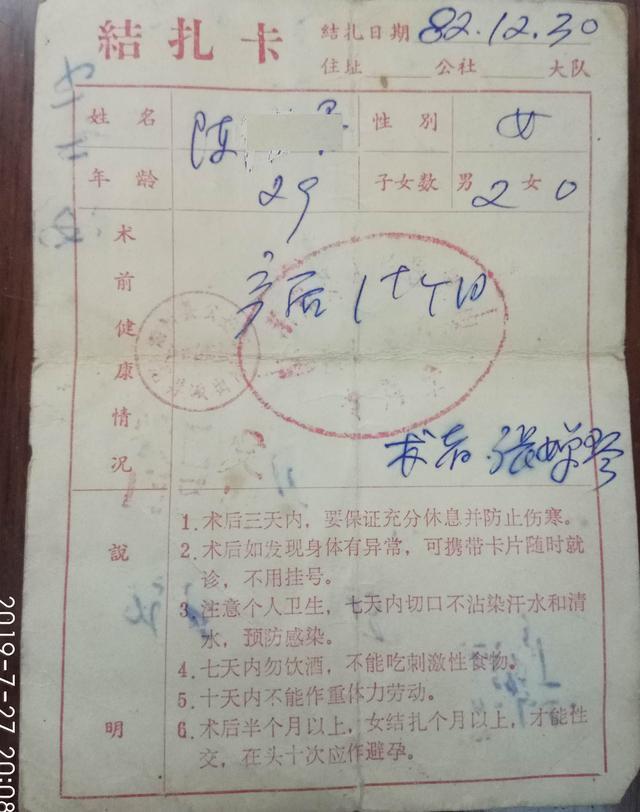 結扎卡
結扎日期 82.12.30
住址 公社 大队
姓名 陈 性别 女
年龄 29 子女数 男 2 女 0
术前健康情况
术者 张
說明
1. 术后三天内，要保证充分休息并防止伤寒。
2. 术后如发现身体有异常，可携带卡片随时就
诊，不用挂号。
3. 注意个人卫生，七天内切口不沾染汗水和清
水，预防感染。
4. 七天内勿饮酒，不能吃刺激性食物。
5. 十天内不能作重体力劳动。
6. 术后半个月以上，女结扎个月以上，才能性
交，在头十次应作避孕。
2019-7-27 20:08